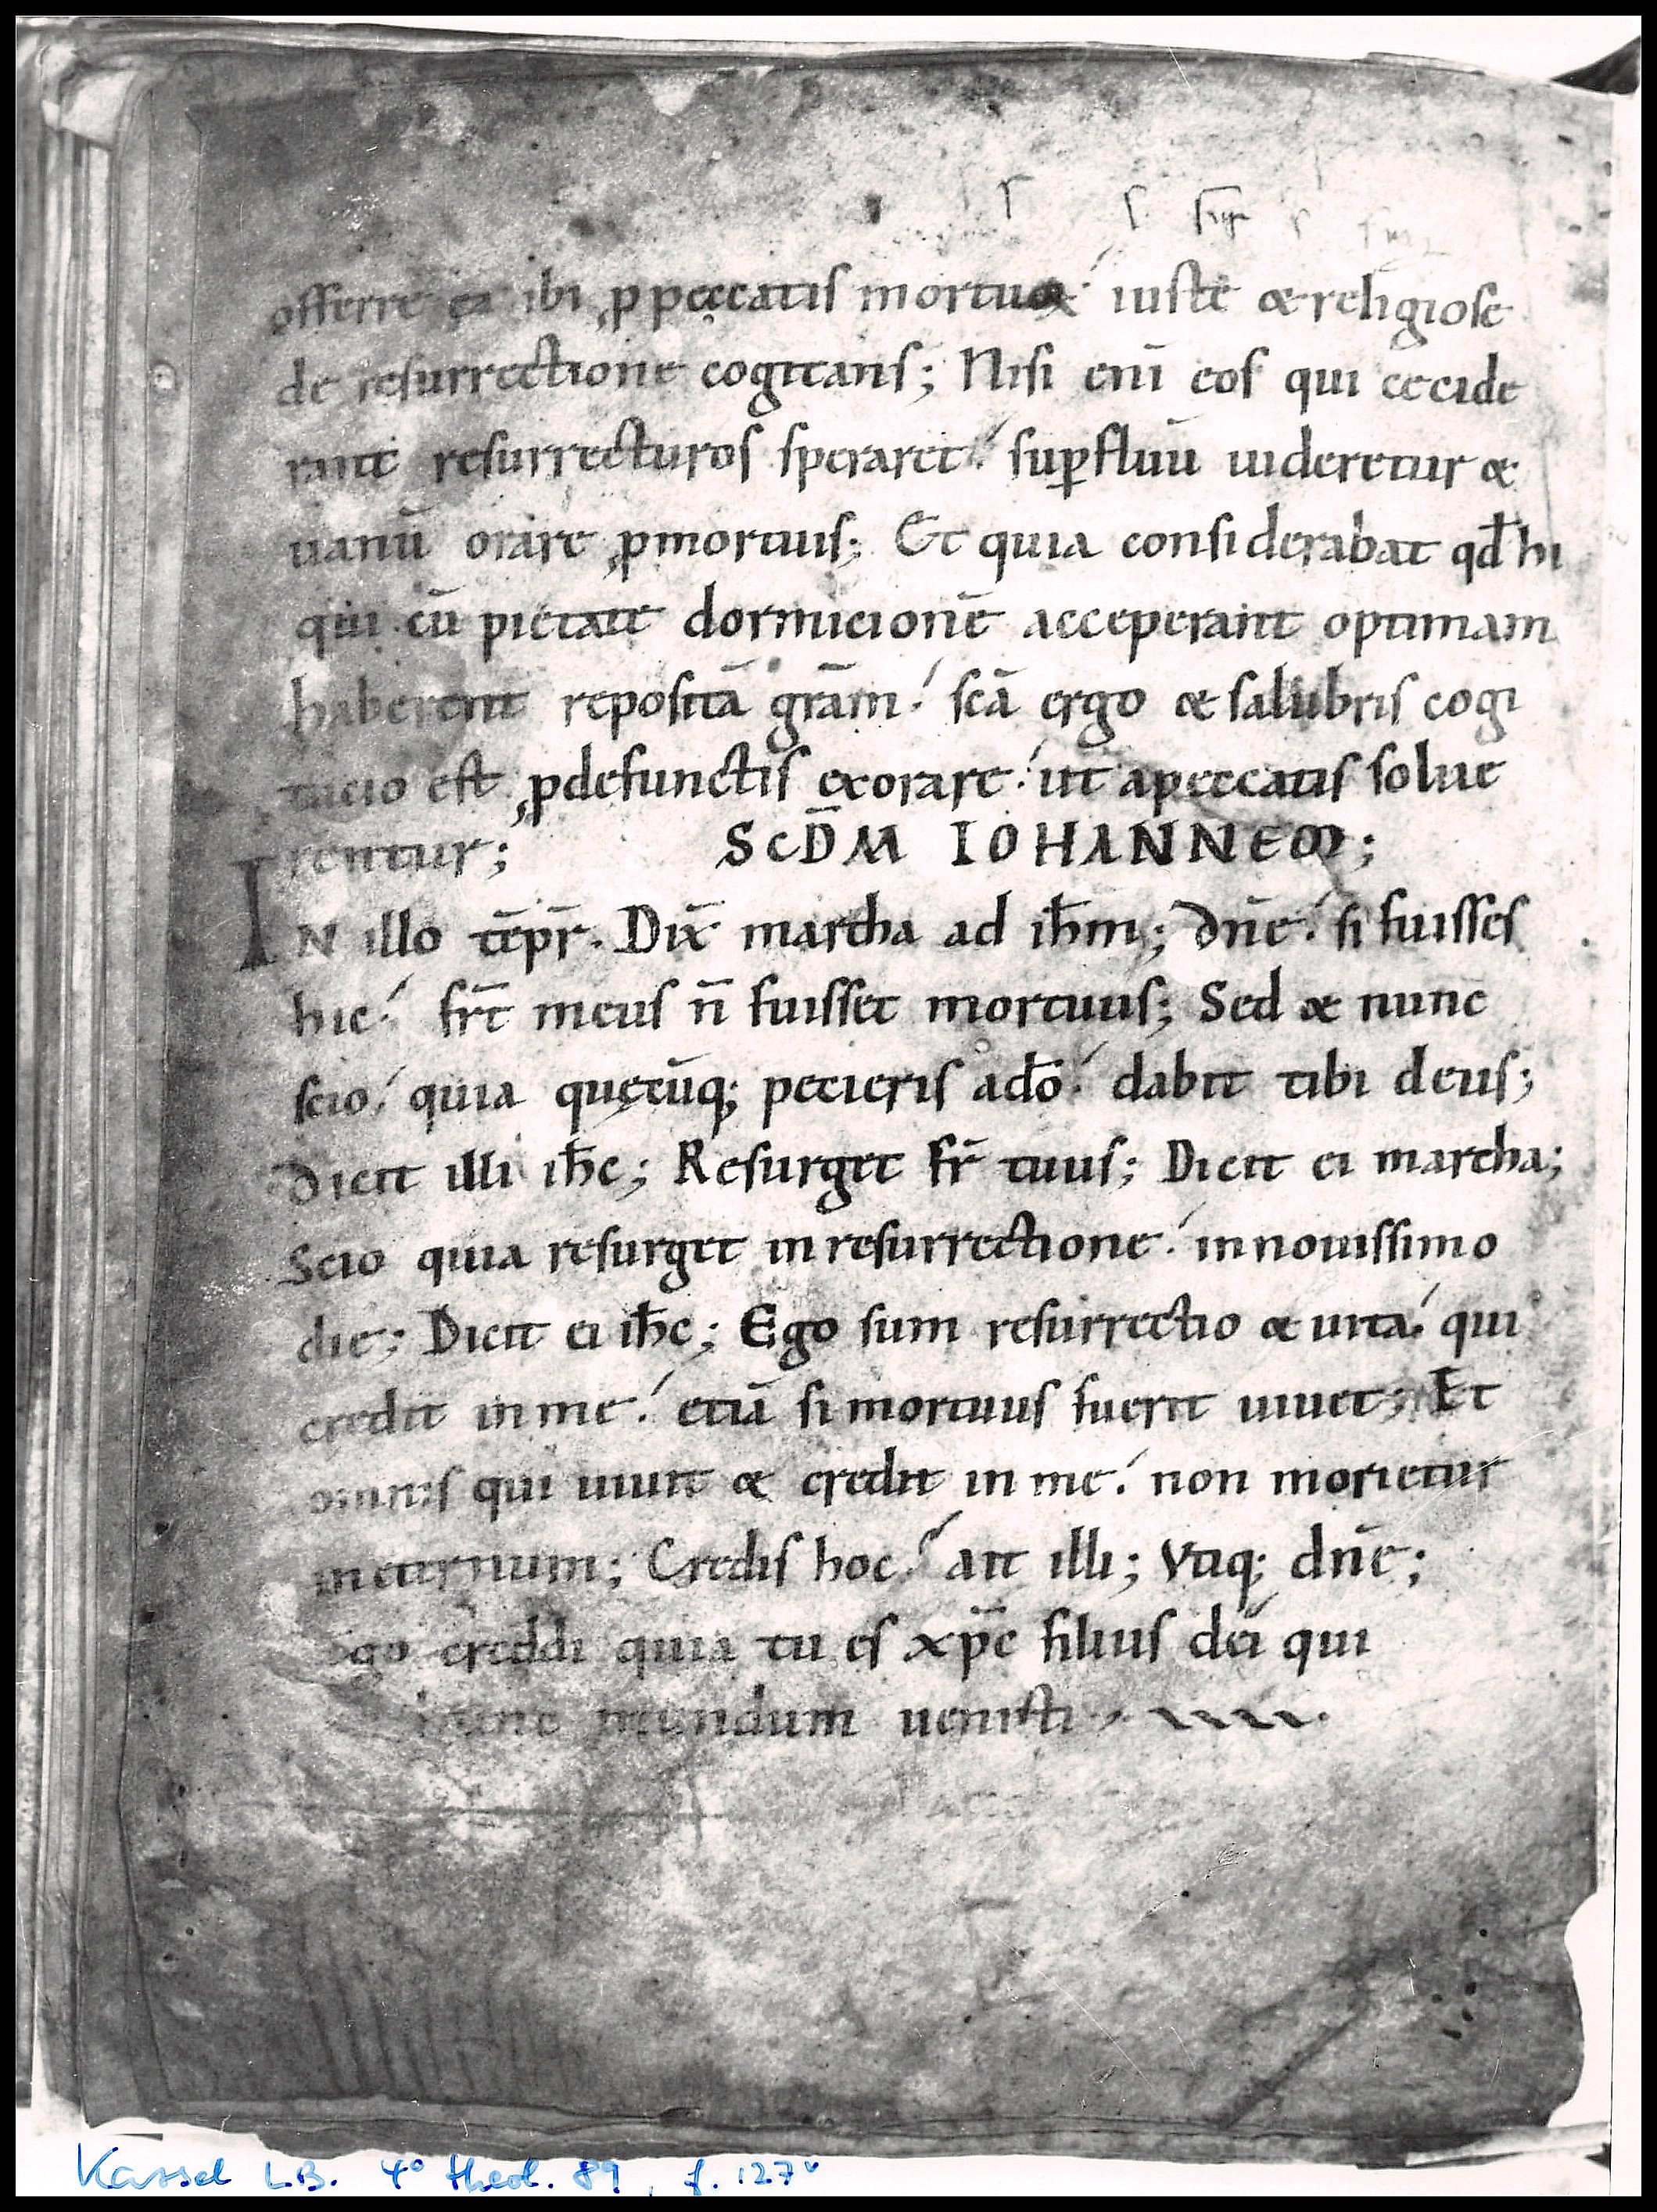 offerre ea ibi ꝓ peccatis mortuoꝝ iuste & religiose
de resurrectione cogitans; Nisi eni̅ eos qui cecide
rant resurrecturos speraret sup̲fluu̅ uideretur &
uanu̅ orare ꝓ mortuis; Et quia considerabat qd̅ hi
qui cu̅ pietate dormicione̅ acceperant optimam
haberent reposita̅ gr̅am. sc̅a ergo & salubris cogi
tacio est ꝓ defunctis exorare. ut a peccatis solue
rentur; SCD̅M IOHANNEM;
IN illo te̅pr̅. Dix̅ martha ad ih̅m; Dn̅e. si fuisses
hic. fr̅t meus n̅ fuisset mortuus; Sed & nunc
scio. quia quęcu̅q; pecieris a do̅. dabit tibi deus;
Dicit illi ih̅c; Resurget fr̅ tuus; Dicit ei martha;
Scio quia resurget in resurrectione. in nouissimo
die; Dicit ei ih̅c; Ego sum resurrectio & uita. qui
credit in me. etia̅ si mortuus fuerit uiuet; Et
omnis qui uiuit & credit in me. non morietur
in eternum; Credis hoc. ait illi; Vtiq; dn̅e;
ego credidi quia tu es xp̅c filius dei qui
hunc mundum uenisti
Kassel L.B. 4° theol. 89, f. 127v